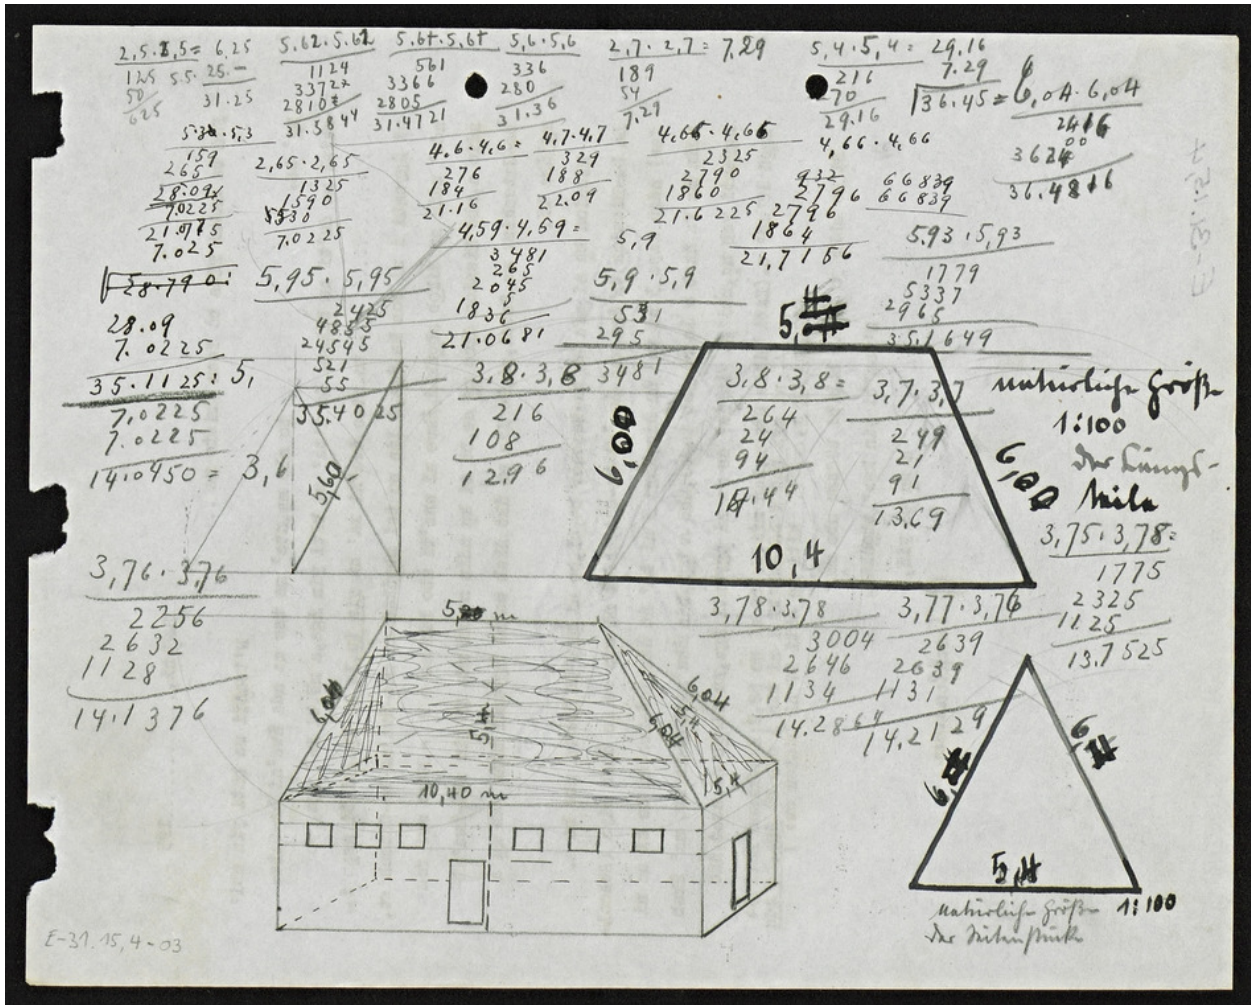 2,5·2,5= 6,25
125
50
625
5.5· 25.-
31.25
5.62·5.62
1124
3372
2810
31.5844
561
3366
2805
31.4721
5,6·5,6
336
280
31.36
2,7·2,7= 7,29
189
54
7.29
5,4·5,4= 29,16
216
270
29.16
7.29
36.45= 6,04·6,04
2416
3624
36.4816
159
265
28.09
7.0225
7.025
2,65·2,65
1325
1590
530
7.0225
4.6·4,6=
276
184
21.16
4,7·4,7
329
188
22.09
4,65·4,65
2325
2790
1860
21.6225
4,66·4,66
2796
2796
1864
21,7156
66839
66839
4,59·4,59=
2045
1836
21.0681
5,9
5,9·5,9
531
295
3481
5.93·5,93
1779
5337
2965
35.1649
28.790
28.09
7.0225
35.1125: 5,
7,0225
7.0225
14.0450 = 3,6
5,95·5,95
521
55
35.4025
216
108
1296
5,60
5,
6,00
3,8·3,8=
264
24
94
3,7·3,7
249
21
91
13.69
10,4
6,00
natürliche Größe
1:100
der Längs-
teile
3,75·3,78=
1775
2325
1125
13.7525
3,76·3,76
2256
2632
1128
14.1376
3,78·3.78
3004
2646
1134
3,77·3,76
2639
2639
1131
14.2129
6,04
6,04
6,04
5,4
5,4
10,40 m
5,4
6,
6,
natürliche Größe
1:100
der Seitenstücke
E-31.15,4-03